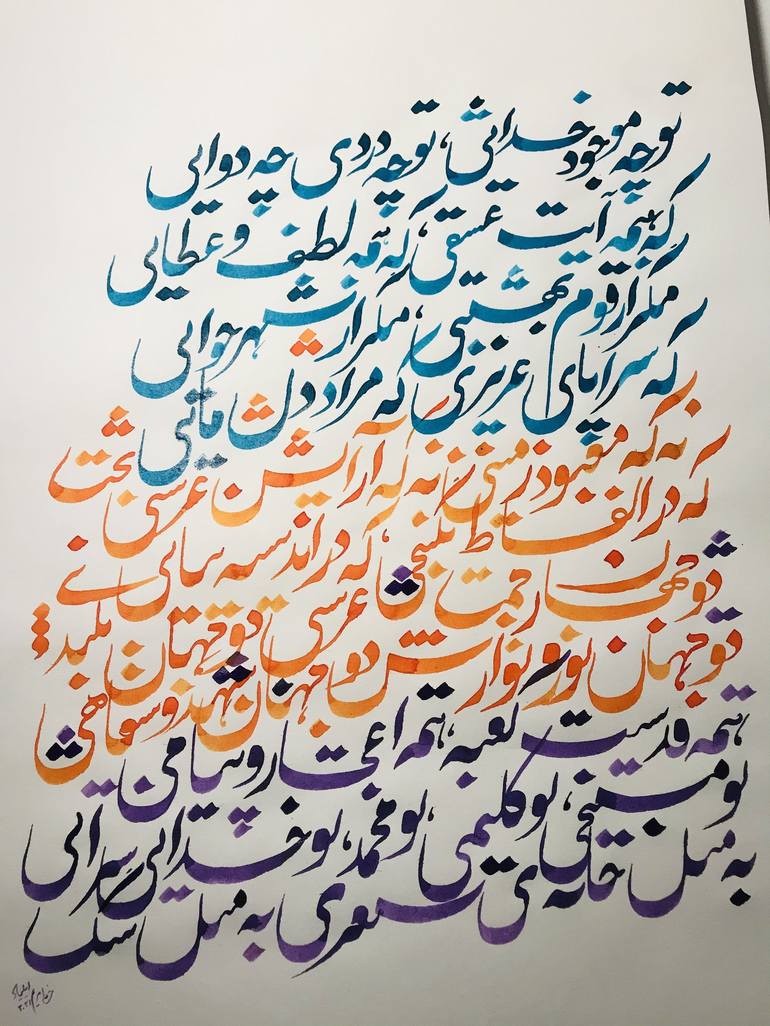 تو چه موجود خدائی، تو چه دردی چه دوایی
که همه آیت عشقی، که همه لطف و عطایی
مگر از قوم بهشتی، مگر از شهر خوابی
که سراپای عزیزی که مراد دل مائی
نه که معبود زمینی نه که آرایش عرشی
که در الفاظ نگنجی، که در اندیشه نیائی
دو جهان رحمت عرشی دو جهان
دو جهان نور و نوازش دو جهان شهد و
همه قدسیت کعبه، همه اعجاز و پیامی
تو مسیحی، تو کلیمی، تو محمد، تو خدایی
به مثل خانه ی شعری به مثل